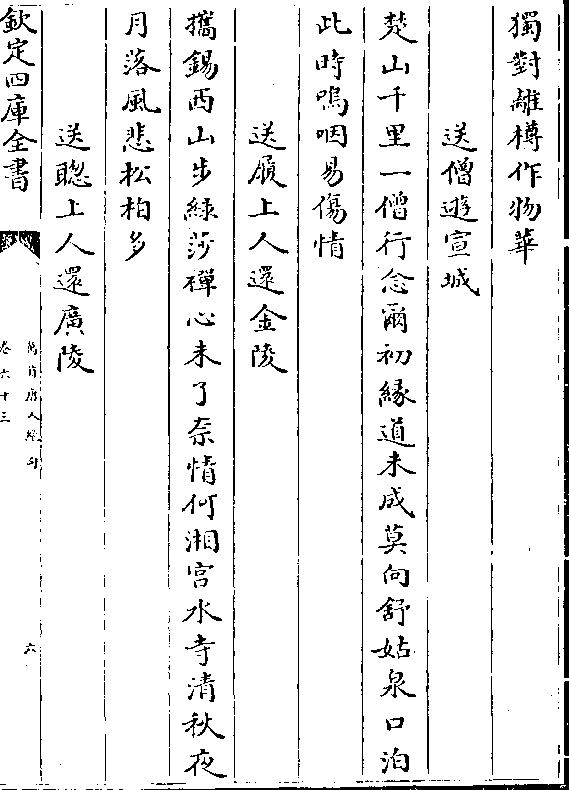 獨對離樽作物華
送僧遊宣城
楚山千里一僧行念爾初緣道未成莫向舒姑泉口泊
此時嗚咽易傷情
送履上人還金陵
攜錫西山步綠莎禪心未了奈情何湘宮水寺清秋夜
月落風悲松柏多
送聰上人還廣陵
欽定四庫全書
萬首唐人絕句
卷六十三
六